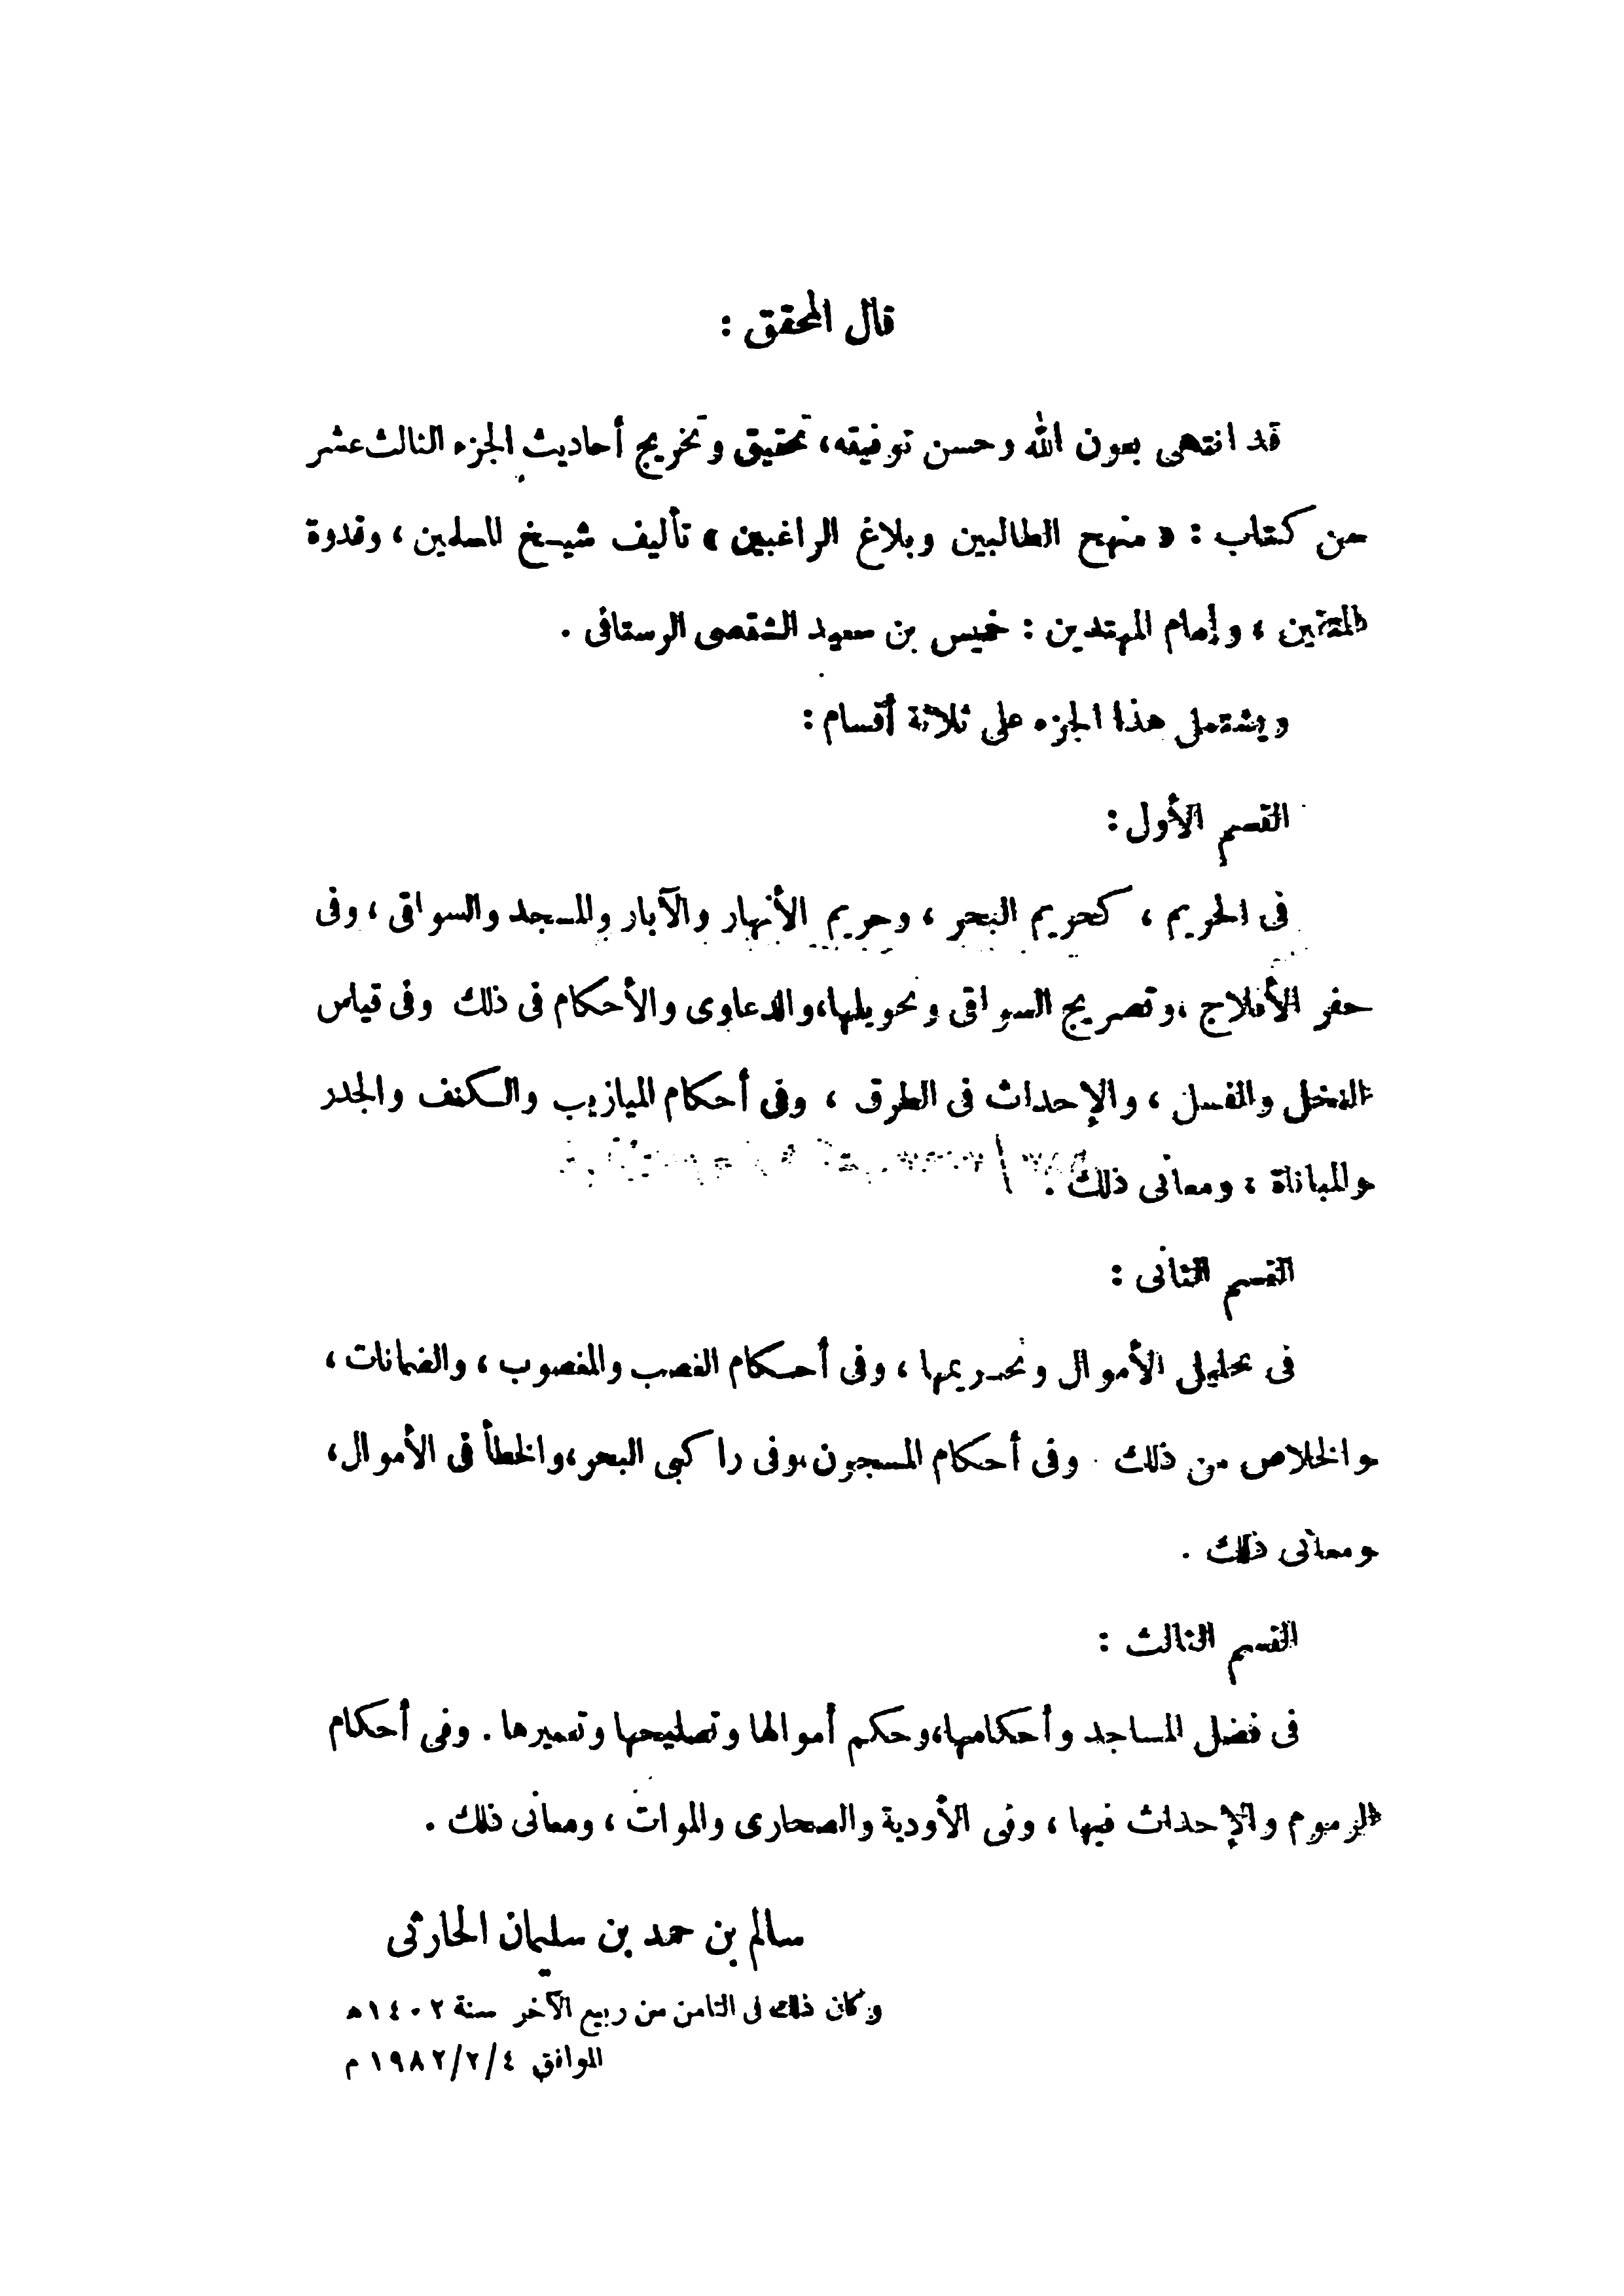 قال المحقق :
قد انتهى بعون الله وحسن توفيقه، تحقيق وتخريج أحاديث الجزء الثالث عشر
من كتاب : « منهج الطالبين وبلاغ الراغبين » تأليف شيخ المسلمين ، وقدوة
المتقين ، وإمام المهتدين : خميس بن سعيد الشقصى الرستاقى .
ويشتمل هذا الجزء على ثلاثة أقسام :
القسم الأول :
فى الحريم ، كحريم البحر ، وحريم الأنهار والآبار والمسجد والسواقى ، وفى
حفر الأفلاج ،وتصريج السواقى وتحويلها،والدعاوى والأحكام فى ذلك وفى قياس
النخل والفسل ، والإحداث فى الطرق ، وفى أحكام الميازيب والكنف والجدر
والمباناة ، ومعانى ذلك .
القسم الثانى :
فى تحليل الأموال وتحريمها ، وفى أحكام الغصب والمغصوب ، والضمانات ،
والخلاص من ذلك . وفى أحكام المسجون،وفى راكبى البحر،والخطأ فى الأموال،
ومعانى ذلك .
القسم الثالث :
فى فضل المساجد وأحكامها،وحكم أموالها وتصليحها وتعميرها . وفى أحكام
الرموم والإحداث فيها ، وفى الأودية والصحارى والموات ، ومعانى ذلك .
سالم بن حمد بن سليمان الحارثى
وكان ذلك فى الثامن من ربيع الآخر سنة ١٤٠٢ه
الموافق ١٩٨٢/٢/٤ م